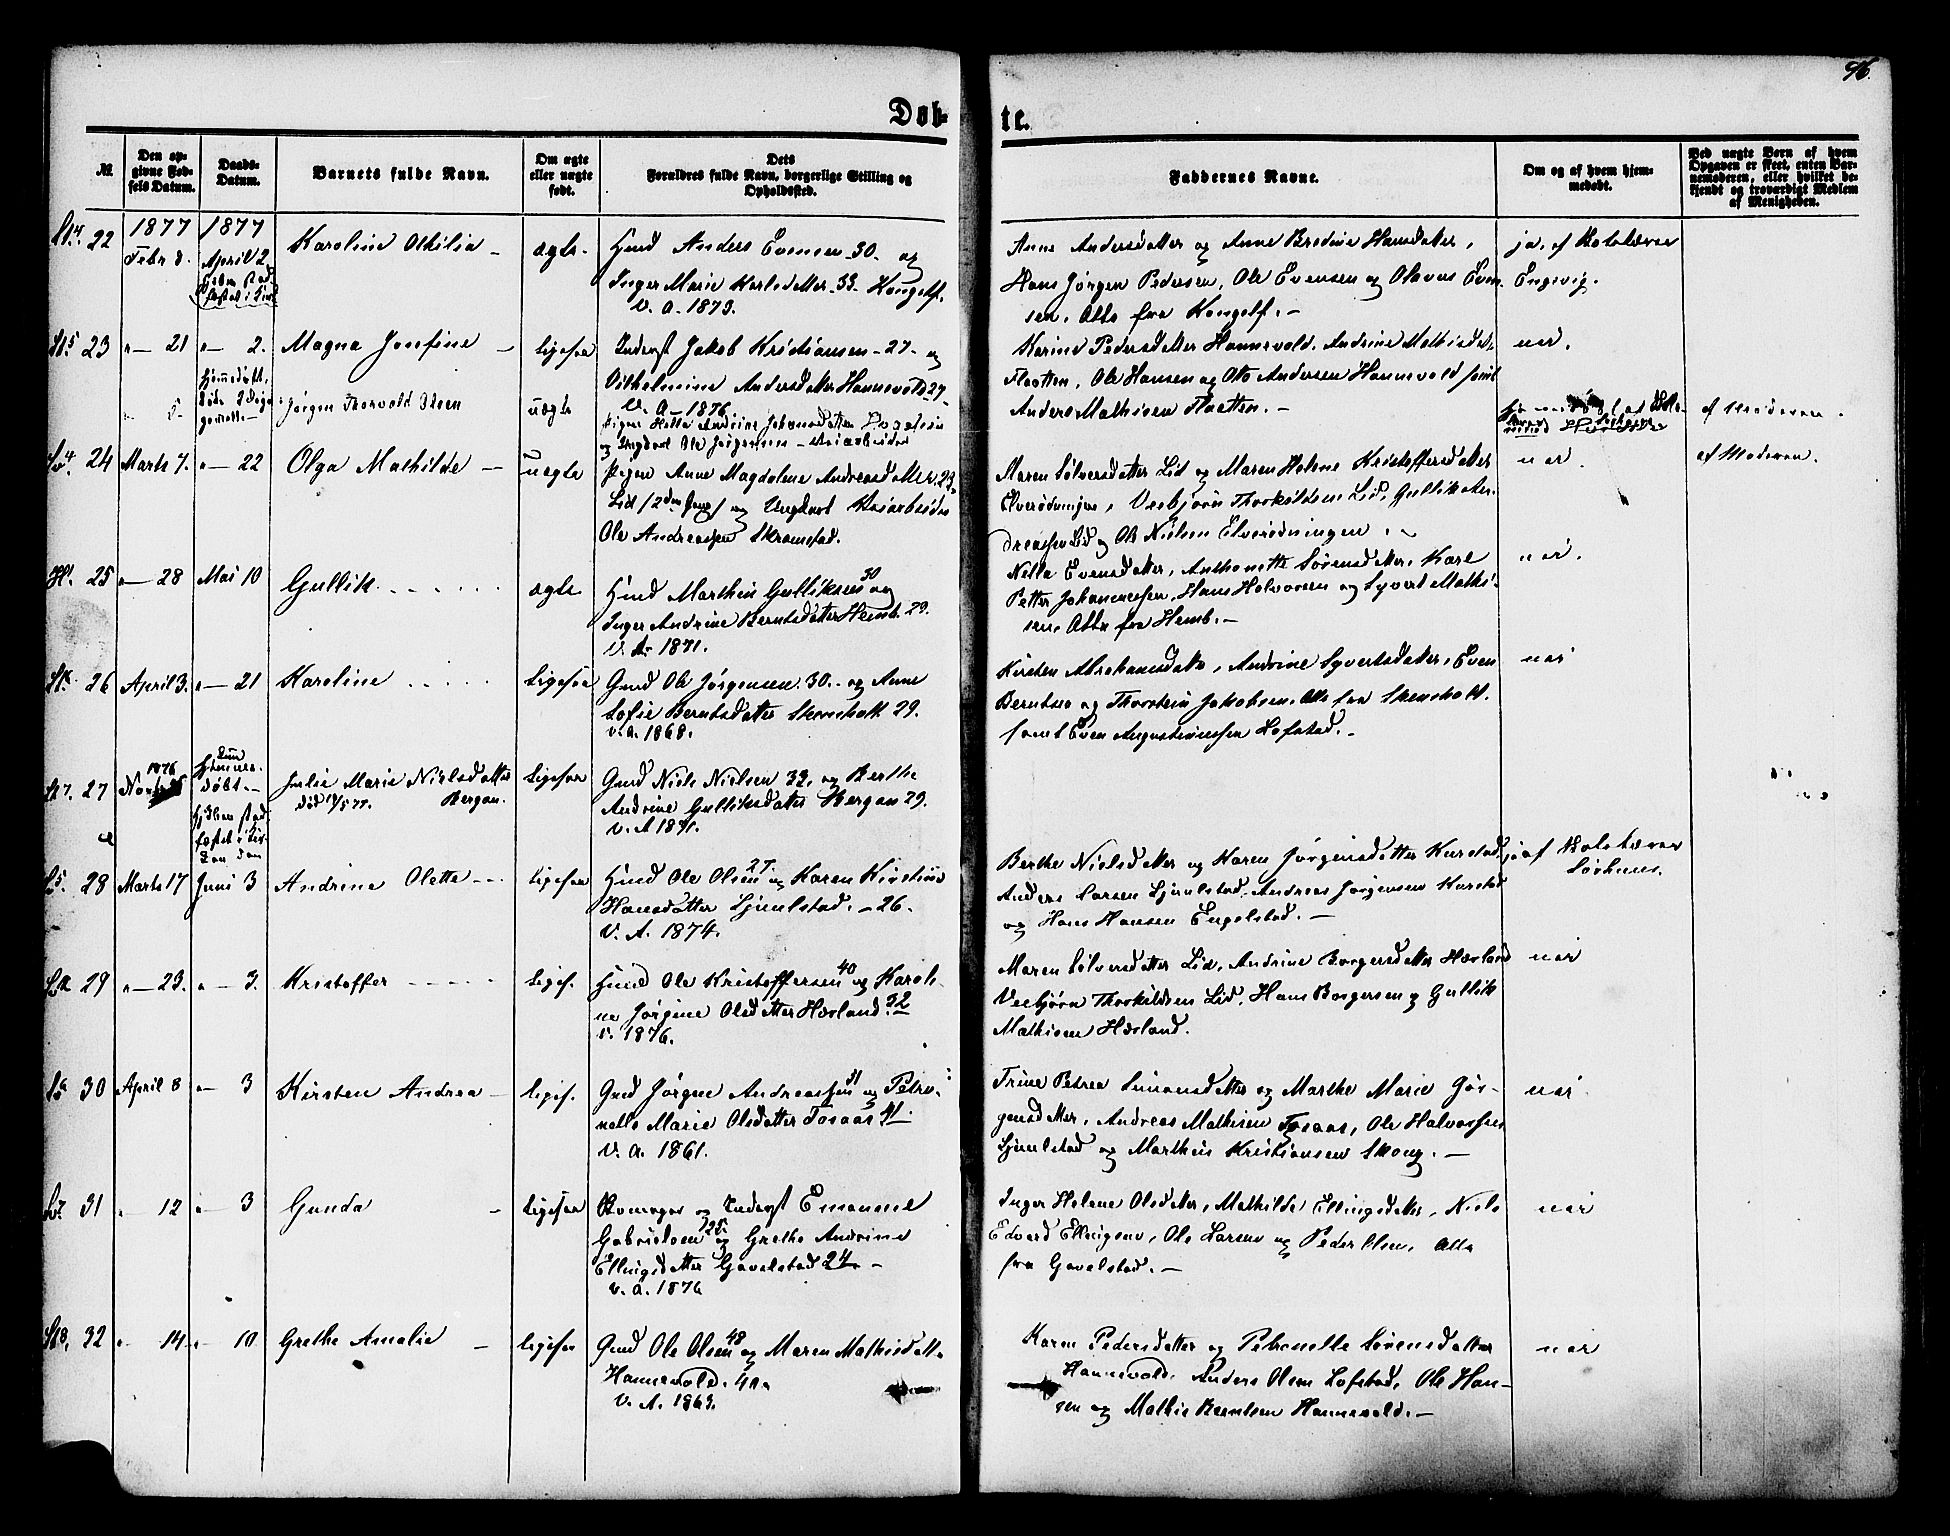 96.
Døbte.
№
Den opgivne Fødsels Datum.
Daabs-Datum.
Barnets fulde Navn.
Om ægte eller uægte født.
Dets Forældres fulde Navn, borgerlige Stilling og Opholdssted.
Faddernes Navne.
Om og af hvem hjemmedøbt.
Ved uægte Børn af hvem Opgaven er skeet, enten Barnemoderen, eller hvilket bekjendt og troværdigt Medlem af Menigheden.
22
1877
Febr 8.
1877
April 2
Karoline Othilia
ægte.
Huusmd Anders Evensen 30. og
Inger Marie Karlsdatter 33. Kongelf.
V. A. 1873.
Anne Andersdatter og Anne Bredine Hansdatter,
Hans Jørgen Pedersen, Ole Evensen og Olavus Even-
sen. Alle fra Kongelf.
ja, af Skolelærer
Engevig.
23
" 21
" 2.
Magna Josefine
Ligesaa
Inderst Jakob Kristiansen 27. og
Vilhelmine Andersdatter Hannevold 27.
V. A. 1876
Karine Pedersdatter Hannevold, Andrine Mathisdat.
Flaatten, Ole Hansen og Otto Andersen Hannevold samt
Anders Mathisen Flaatten.
nei.
Hjemmedøbt,
Jørgen Thorvald Olsen
uægte
og Ungkarl Ole Jørgensen
af Moderen.
24
Marts 7.
" 22
Olga Mathilde
Uægte
Pigen Anne Magdalene Andreasdatter, 23.
Lid og Ungkarl Veiarbeider
Ole Andreassen Skramstad.
Maren Sølversdatter Lid og Maren Helene Kristoffersdatter
Elverødningen, Vebjørn Thorkildsen Lid, Gullik An-
dreassen Lid og Ole Nielsen Elverødningen.
nei.
af Moderen.
25
" 28
Mai 10
Gullik
ægte
Huusmd Marthin Gulliksen 30 og
Inger Andrine Berntsdatter Hemb. 29.
V. A. 1871.
Nella Evensdatter, Anthonette Sørensdatter, Karl
Petter Johannesen, Hans Halvorsen og Syvert Mathi-
sen, Alle fra Hemb.
nei.
26
April 3.
" 21
Karoline
Ligesaa
Gmd Ole Jørgensen. 30. og Anne
Sofie Berntsdatter Skensholt 29.
V. A. 1868.
Kirsten Abrahamsdatter, Andrine Syvertsdatter, Even
Berntsen og Thorstein Jakobsen, Alle fra Skensholt.
samt Even Augustinussen Lofstad.
nei
27
1876
Nov
Hjemme-
døbt.
Julie Marie Nielsdatter
Bergan.
Ligesaa
Gmd Niels Nielsen 33. og Berthe
Andrine Gulliksdatter Bergan 29.
V. A 1871.
28
Marts 17
Juni 3
Andrine Olette
Ligesaa
Huusmd Ole Olsen 27 og Karen Kirstine
Hansdatter Ljunelstad. 26.
V. A. 1874.
Berthe Nielsdatter og Karen Jørgensdatter Kurstad
Anders Larsen Ljunelstad, Andreas Jørgensen Kurstad
og Hans Hansen Engelstad.
ja af Skolelærer
Sørhuus.
29
" 23.
" 3.
Kristoffer
Ligef.
Huusmd Ole Kristoffersen 40 og Karoli-
ne Jørgine Olsdatter Hærland. 32
V. 1876.
Maren Sølversdatter Lid, Andrine Borgersdatter Hærland
Vebjørn Thorkildsen Lid, Hans Borgersen og Gullik
Mathisen Hærland.
nei
30
April 8
" 3
Kirsten Andrea
Ligef.
Gmd Jørgen Andreassen 51 og Petro-
nelle Marie Olsdatter Fosaas 41.
V. A. 1861.
Trine Petrea Simonsdatter og Marthe Marie Jør-
gensdatter, Andreas Mathisen Fosaas, Ole Halvorsen
Ljunelstad og Marthin Kristiansen Skoug.
nei
31
" 12
" 3
Gunda
Ligesaa
Skomager og Inderst Emanuel
Gabrielsen 25. og Grethe Andrine
Ellingsdatter Gavelstad 24
V. A. 1876
Inger Helene Olsdatter, Mathilde Ellingsdatter, Niels
Edvard Ellingsen, Ole Larsen og Peder Olsen, Alle
fra Gavelstad.
nei
32
" 14.
" 10
Grethe Amalie
Ligesaa
Gmd Ole Olsen 48 og Maren Mathisdatt.
Hannevold. 40.
V. A. 1863.
Karen Pedersdatter og Petronelle Sørensdatter
Hannevold, Anders Olsen Lofstad, Ole Han-
sen og Mathis Berntsen Hannevold.
nei